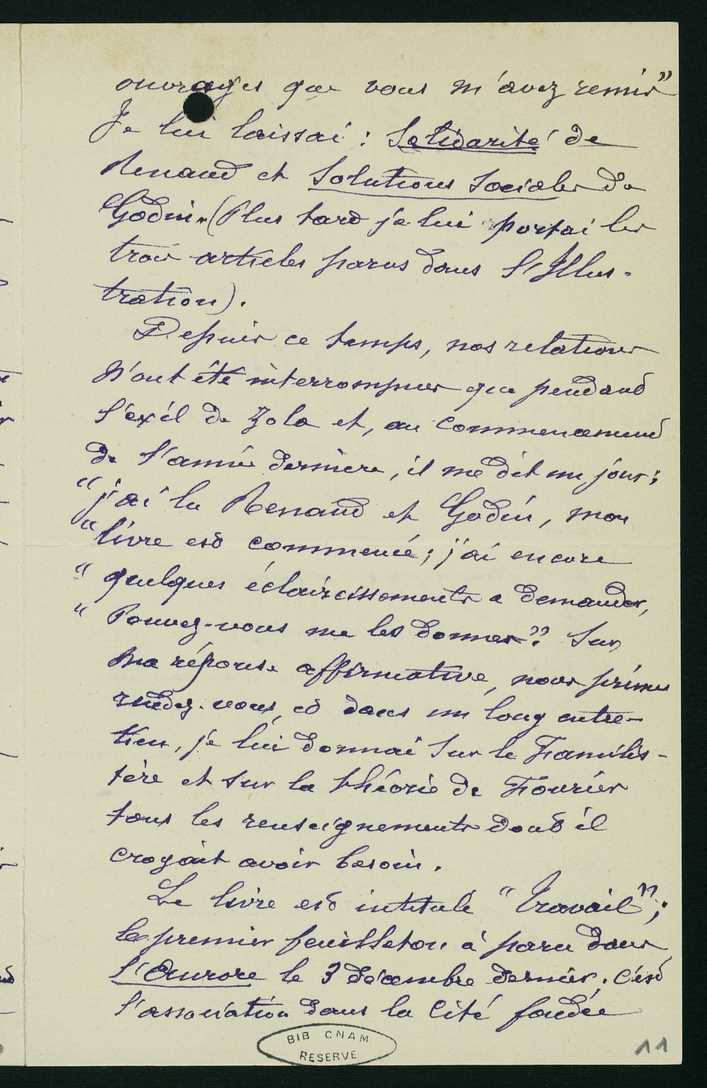 ouvrages que vous m'avez remis"
Je lui laissai : Solidarité de
Renaud et Solutions Sociales de
Godin. (Plus tard je lui portai les
trois articles parus dans l'Illus-
tration).
Depuis ce temps, nos relations
n'ont été interrompues que pendant
l'exil de Zola et, au commencement
de l'année dernière, il me dit un jour :
"j'ai lu Renaud et Godin, mon
"livre est commencé ; j'ai encore
"quelques éclaircissements a demander,
"Pouvez-vous me les donner"? Sur
ma réponse affirmative, nous prîmes
rendez-vous et dans un long entre-
tien, je lui donnai sur le Familis-
tère et sur la théorie de Fourier
tous les renseignements dont il
croyait avoir besoin.
Le livre est intitulé "Travail" ;
le premier feuilleton a paru dans
l'Aurore le 3 décembre dernier ; c'est
l'association dans la Cité fondée
BIB CNAM
RESERVE
11